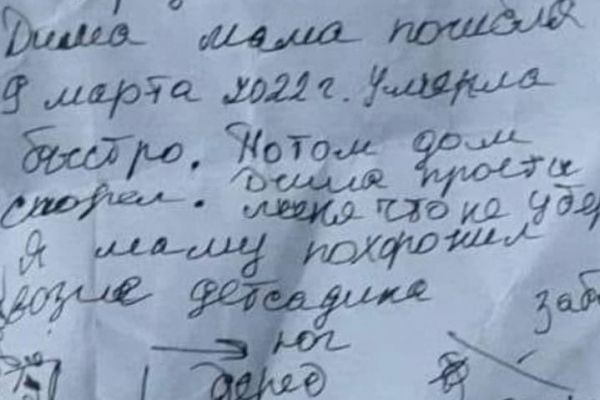 Дима мама погибла
9 марта 2022г. Умерла
быстро. Потом дом
сгорел. Дима прости
меня что не убер
Я маму похоронил
возле детсадика
заб
юг
дерев